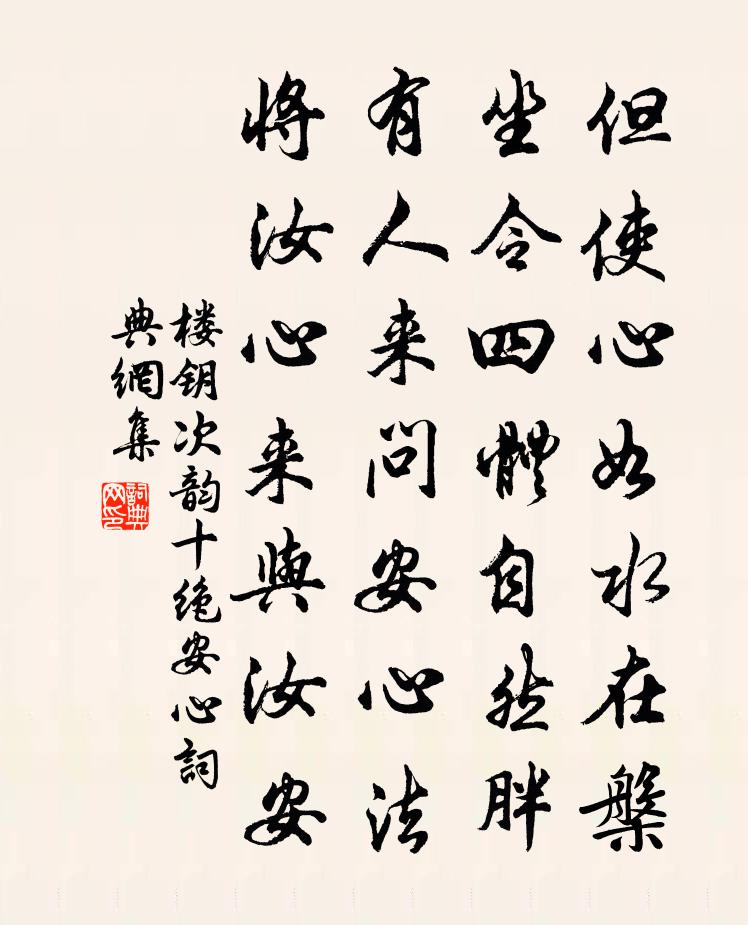 但使心如水在槃
坐令四體自然胖
有人来問安心法
将汝心来與汝安
楼钥次韵十绝安心詞
典網集
詞典
网印